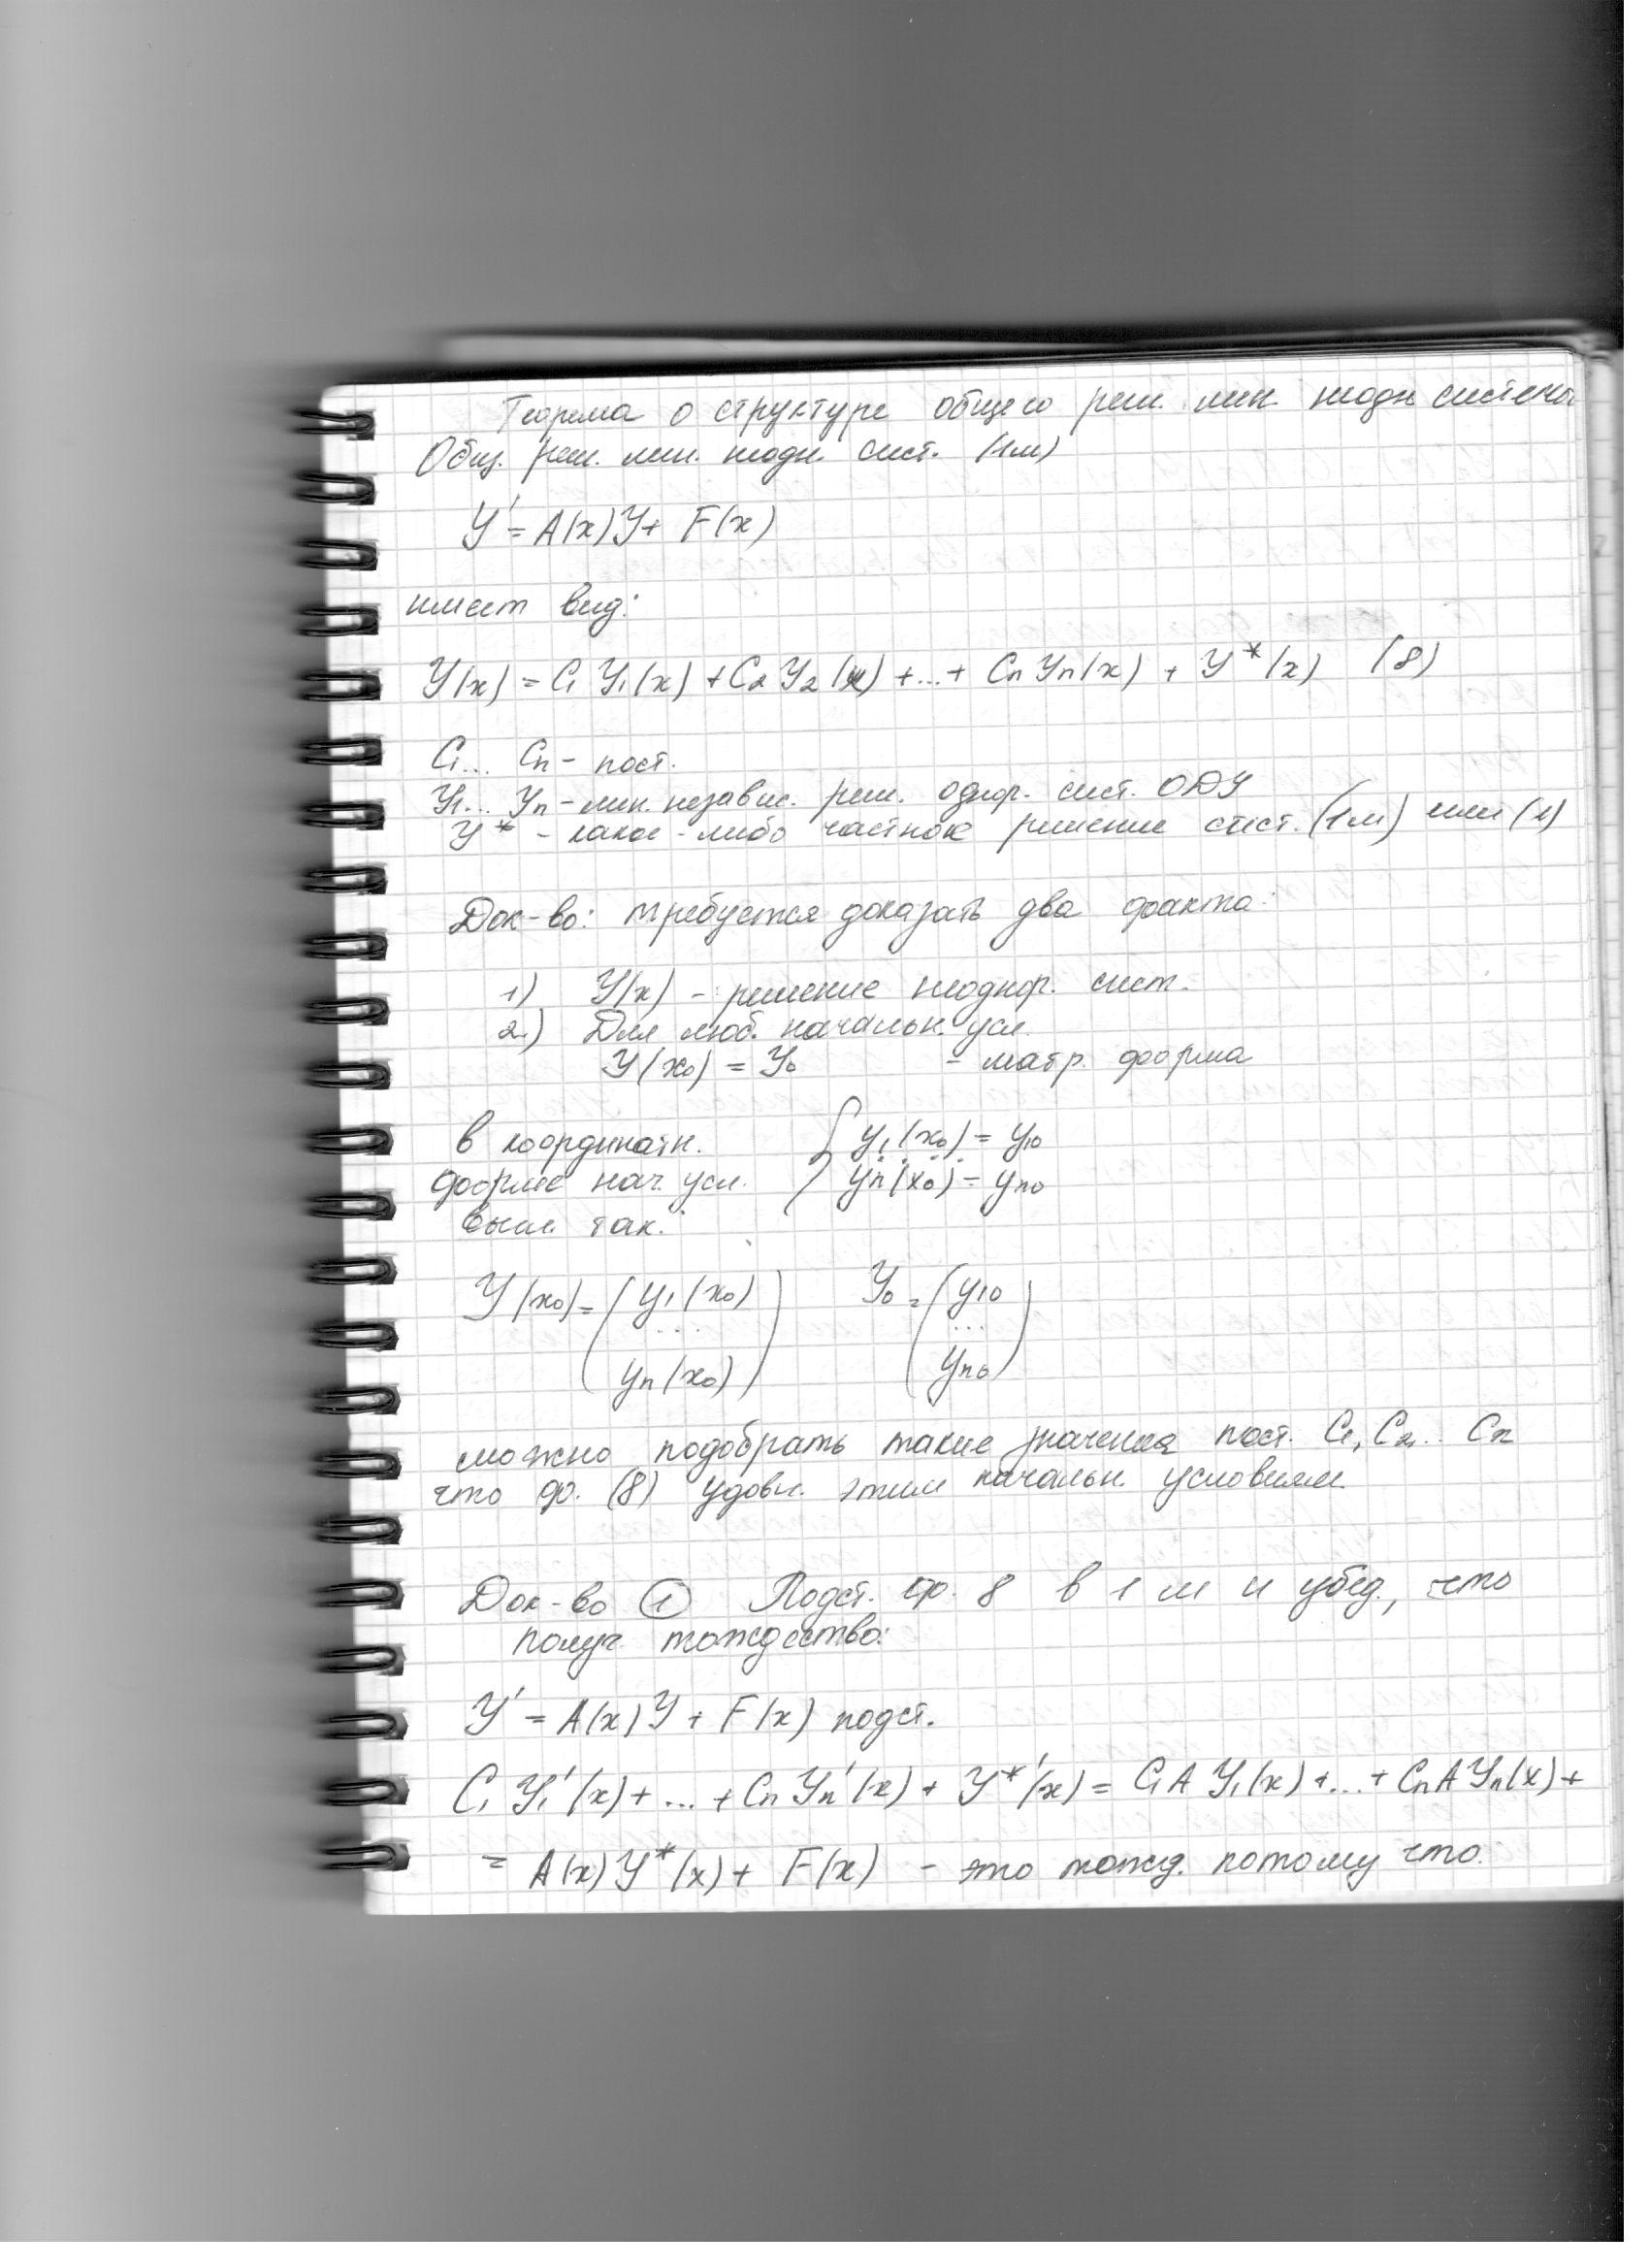 Теорема о структуре общего реш. лин. неодн системы
Общ. реш. лин. неодн. сист. (1м)
Y' = A(x)Y + F(x)
имеет вид:
Y(x) = C₁Y₁(x) + C₂Y₂(x) + ... + CₙYₙ(x) + Y*(x) (8)
C₁... Cₙ - пост.
Y₁... Yₙ - лин. независ. реш. однор. сист. ОДУ
Y* - какое-либо частное решение сист. (1м) или (1)
Док-во: требуется доказать два факта:
1) Y(x) - решение неоднор. сист.
2) Для люб. начальн. усл.
Y(x₀) = Y₀ - матр. форма
в координатн. { y₁(x₀) = y₁₀
форме нач. усл. yₙ(x₀) = yₙ₀
выгл. так:
Y(x₀) = ( y₁(x₀) Y₀ = ( y₁₀
... ...
yₙ(x₀) ) yₙ₀ )
можно подобрать такие значения пост. C₁, C₂... Cₙ
что ф. (8) удовл. этим начальн. условиям.
Док-во ① Подст. ф. 8 в 1м и убед., что
получ. тождество:
Y' = A(x)Y + F(x) подст.
C₁Y₁'(x) + ... + CₙYₙ'(x) + Y*'(x) = C₁AY₁(x) + ... + CₙAYₙ(x) +
= A(x)Y*(x) + F(x) - это тожд. потому что: